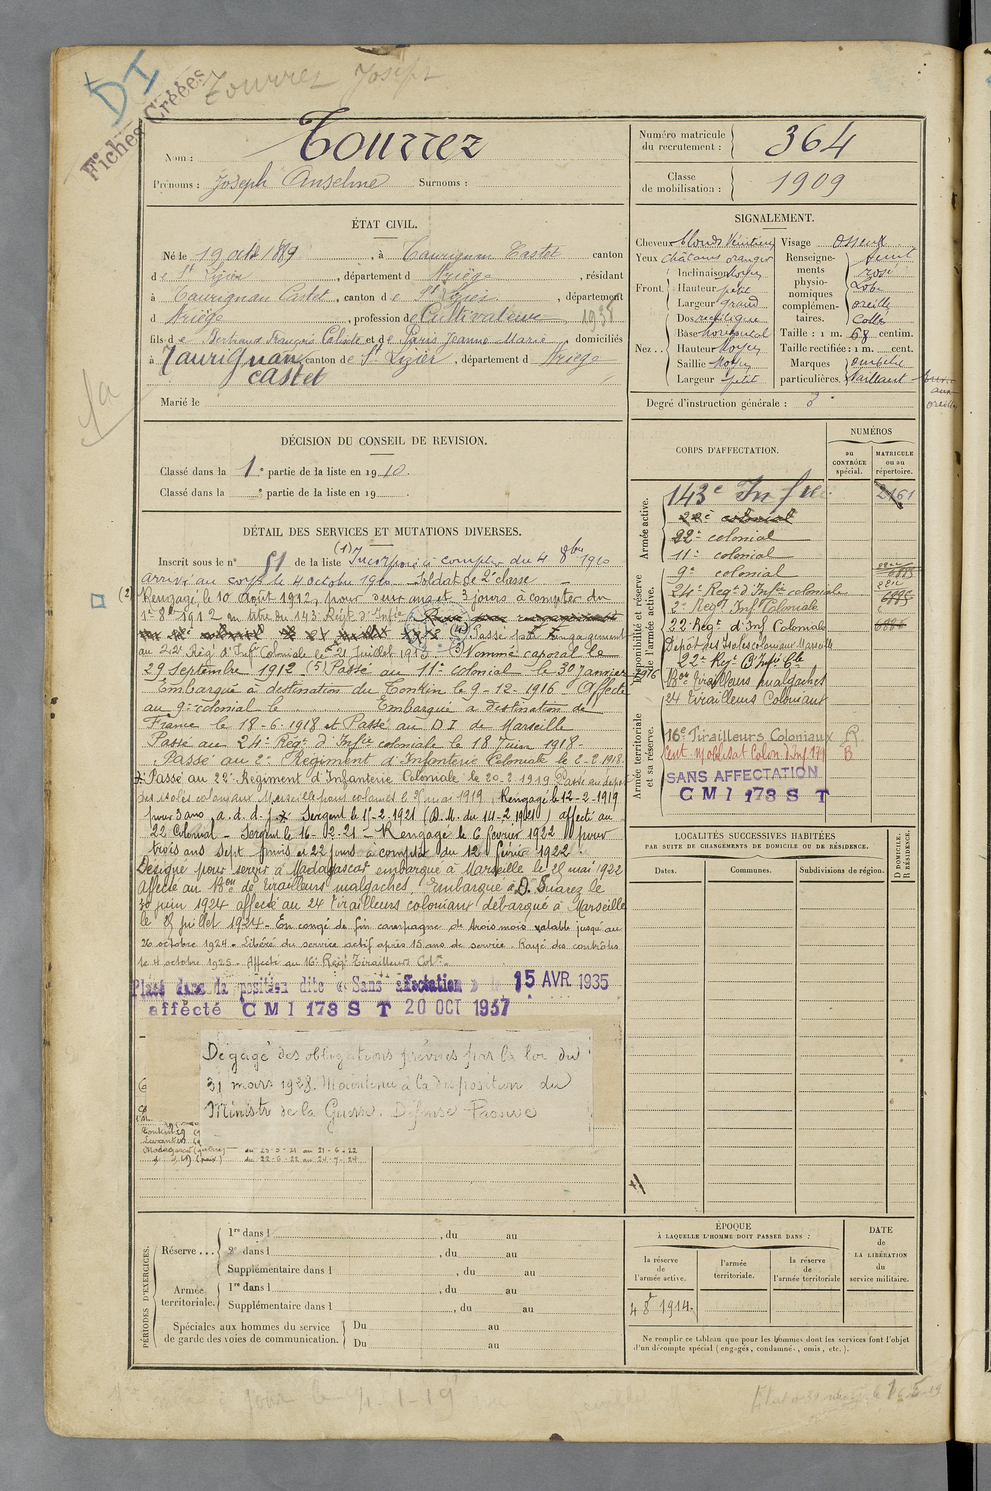 DI
Fiches Créées
Tourrez Joseph
Nom : Tourrez
Prénoms : Joseph Anselme Surnoms :
Numéro matricule du recrutement : 364
Classe de mobilisation : 1909
ÉTAT CIVIL.
Né le 19 octb 1889, à Taurignan Castet canton
de St Lizier, département d Ariège, résidant
à Taurignan Castet, canton de St Lizier, département
d Ariège, profession de Cultivateur 1938
fils de Bertrand François Caliste et de Paris Jeanne Marie domiciliés
à Taurignan Castet canton de St Lizier, département d Ariège
Marié le
SIGNALEMENT.
Cheveux blonds Vénitiens Visage osseux
Yeux châtains oranger
Renseignements physionomiques complémentaires.
rosé
Lobe
oreille
collé
Front. Inclinaison Moyen
Hauteur petit
Largeur grand
Nez.. Dos rectiligne
Base horizontal
Hauteur Moyen
Saillie Moyen
Largeur petit
Taille : 1 m. 68 centim.
Taille rectifiée : 1 m. cent.
Marques particulières.
Degré d'instruction générale : 3
DÉCISION DU CONSEIL DE REVISION.
Classé dans la 1e partie de la liste en 1910.
Classé dans la e partie de la liste en 19 .
DÉTAIL DES SERVICES ET MUTATIONS DIVERSES.
Inscrit sous le n° 51 de la liste (1) Incorporé à compter du 4 8bre 1910
Arrivé au corps le 4 octobre 1910 Soldat de 2e classe
(2) Rengagé le 10 août 1912, pour deux ans et 3 jours à compter du
1er 8bre 1912 au titre du 143e Régt d'Infie
(4) Passé par rengagement
au 22e Régt d'Infie Coloniale le 21 Juillet 1913 (3) Nommé caporal le
29 septembre 1912 (5) Passé au 11e colonial le 30 janvier 1916
Embarqué à destination du Tonkin le 9-12-1916 Affecté
au 9e colonial le Embarqué à destination de
France le 18-6-1918 et Passé au D I de Marseille
Passé au 24e Régt d'Infie coloniale le 18 Juin 1918-
Passé au 2e Régiment d'Infanterie Coloniale le 2-2-1918
Passé au 22e Régiment d'Infanterie Coloniale le 20-2-1919 Passé au dépôt
des isolés coloniaux Marseille le 25 mai 1919. Rengagé le 12-2-1919
pour 3 ans, a. d. d. j. Sergent le 1er-2-1921 (D.M. du 14-2-1921) affecté au
22 Colonial - Sergent le 16-02-21 - Rengagé le 6 février 1922 pour
trois ans sept mois et 22 jours à compter du 12 février 1922.
Désigné pour servir à Madagascar embarqué à Marseille le 28 mai 1922
affecté au Bon de tirailleurs malgaches. Embarqué à D. Suarez le
30 juin 1924 affecté au 24 tirailleurs coloniaux débarqué à Marseille
le 28 juillet 1924. En congé de fin campagne de trois mois valable jusqu'au
26 octobre 1924. Libéré du service actif après 15 ans de service. Rayé des contrôles
le 4 octobre 1925. Affecté au 16e Régt Tirailleurs Colx.
Placé dans la position dite « Sans affectation » le 15 AVR. 1935
affecté C M I 178 S T 20 OCT 1937
Dégagé des obligations prévues par la loi du
31 mars 1928. Maintenu à la disposition du
Ministre de la Guerre. Défense Passive
Madagascar (guerre) du 25-5-21 au 21-6-22
d° (paix) du 22-6-22 au 24-7-24
CORPS D'AFFECTATION.
NUMÉROS
au CONTRÔLE spécial.
MATRICULE ou au répertoire.
Armée active.
143e Infie 2161
22e colonial
11e colonial
9e colonial
Disponibilité et réserve de l'armée active.
24e Régt d'Infie coloniale
2e Régt Inf Coloniale
22 Régt d'Inf Coloniale
Dépôt des isolés coloniaux Marseille
22e Régt d'Infie Cle
Bon Tirailleurs malgaches
24 Tirailleurs Coloniaux
Armée territoriale et sa réserve.
16e Tirailleurs Coloniaux R
Cent. Mobilisat Colon. d'Inf. 179 B
SANS AFFECTATION
C M I 178 S T
LOCALITÉS SUCCESSIVES HABITÉES
PAR SUITE DE CHANGEMENTS DE DOMICILE OU DE RÉSIDENCE.
Dates.
Communes.
Subdivisions de région.
D DOMICILE. R RÉSIDENCE.
PÉRIODES D'EXERCICES.
Réserve ... 1re dans l , du au
2e dans l , du au
Supplémentaire dans l , du au
Armée territoriale. 1re dans l , du au
Supplémentaire dans l , du au
Spéciales aux hommes du service de garde des voies de communication. Du au
Du au
ÉPOQUE
À LAQUELLE L'HOMME DOIT PASSER DANS :
la réserve de l'armée active.
l'armée territoriale.
la réserve de l'armée territoriale
DATE de LA LIBÉRATION du service militaire.
4 8r 1914.
Ne remplir ce tableau que pour les hommes dont les services font l'objet
d'un décompte spécial (engagés, condamnés, omis, etc.).